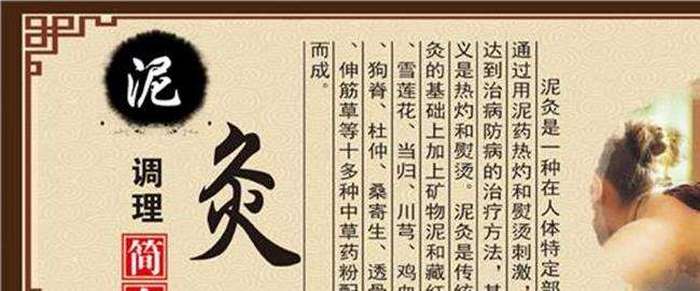 泥灸
调理
简
泥灸是一种在人体特定部
通过用泥药热灼和熨烫刺激，
达到治病防病的治疗方法，其
义是热灼和熨烫。泥灸是传统
灸的基础上加上矿物泥和藏红
、雪莲花、当归、川芎、鸡血
、狗脊、杜仲、桑寄生、透骨
、伸筋草等十多种中草药粉配
而成。